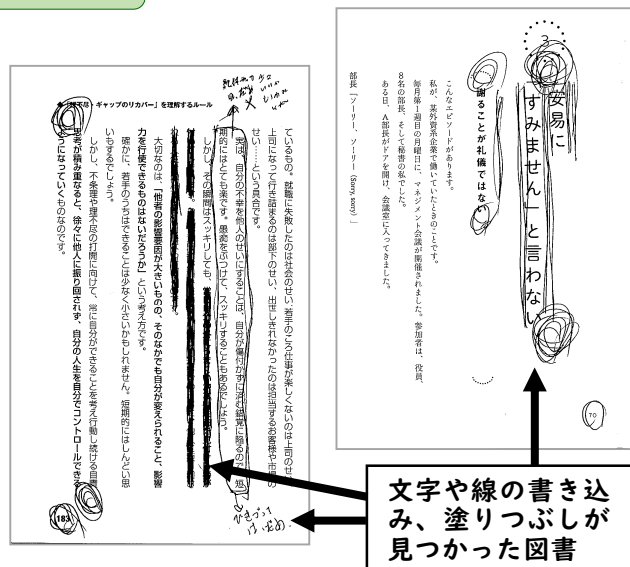 3
安易に
「すみません」と言わない
謝ることが礼儀ではない
こんなエピソードがあります。
私が、某外資系企業で働いていたときのことです。
毎月第1週目の月曜日に、マネジメント会議が開催されました。参加者は、役員、
8名の部長、そして秘書の私でした。
ある日、A部長がドアを開け、会議室に入ってきました。
部長「ソーリー、ソーリー（Sorry, sorry）」
70
ギャップのリカバー」を理解するルール
ているもの。就職に失敗したのは社会のせい、若手のころ仕事が楽しくないのは上司のせい、
上司になって行き詰まるのは部下のせい、出世しきれなかったのは担当するお客様や市場の
せい……という具合です。
実は、自分の不幸を他人のせいにすることは、自分が傷付かずに済む錯覚に陥るので、短
期的にはとても楽です。愚痴をぶつけて、スッキリすることもあるでしょう。
しかし、その瞬間はスッキリしても、
大切なのは、「他者の影響要因が大きいものの、そのなかでも自分が変えられること、影響
力を行使できるものはないだろうか」という考え方です。
確かに、若手のうちはできることは少なく小さいかもしれません。短期的にはしんどい思
いもするでしょう。
しかし、不条理や理不尽の打開に向けて、常に自分ができることを考え行動し続ける自責
思考が積み重なると、徐々に他人に振り回されず、自分の人生を自分でコントロールできる
うになっていくものなのです。
183
文字や線の書き込
み、塗りつぶしが
見つかった図書